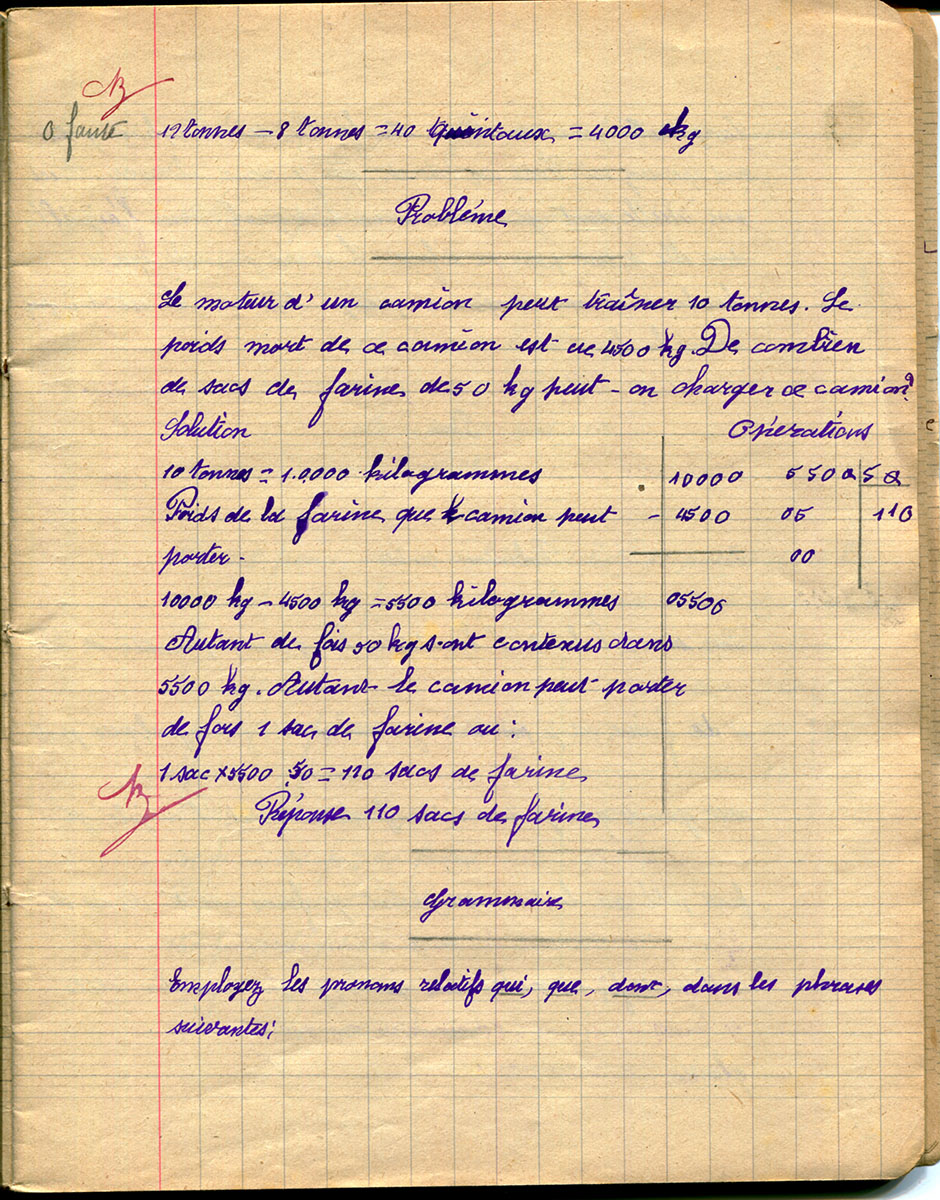 0 faute
12 tonnes - 8 tonnes = 40 quintaux = 4000 kg
Problème
Le moteur d'un camion peut traîner 10 tonnes. Le
poids mort de ce camion est de 4500 kg. De combien
de sacs de farine de 50 kg peut-on charger ce camion?
Solution
Opérations
10 tonnes = 10000 kilogrammes
10000 5500 50
Poids de la farine que le camion peut
- 4500 05 110
porter.
00
10000 kg - 4500 kg = 5500 kilogrammes
05500
Autant de fois 50 kg sont contenus dans
5500 kg. Autant le camion peut porter
de fois 1 sac de farine ou:
1 sac x 5500 : 50 = 110 sacs de farine
Réponse 110 sacs de farine
Grammaire
Employez les pronoms relatifs qui, que, dont, dans les phrases
suivantes: